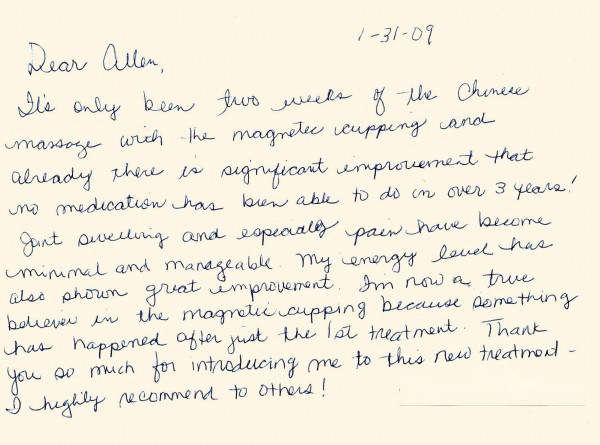 1-31-09
Dear Allen,
It's only been two weeks of the Chinese
massage with the magnetic cupping and
already there is significant improvement that
no medication has been able to do in over 3 years!
Joint swelling and especially pain have become
minimal and manageable. My energy level has
also shown great improvement. I'm now a true
believer in the magnetic cupping because something
has happened after just the 1st treatment. Thank
you so much for introducing me to this new treatment -
I highly recommend to others!